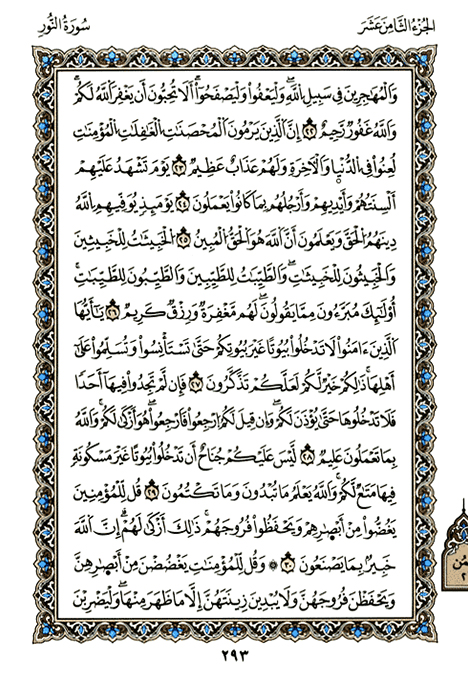 الجزء الثامن عشر
سورة النور
وَالْمُهَاجِرِينَ فِي سَبِيلِ اللَّهِ وَلْيَعْفُوا وَلْيَصْفَحُوا أَلَا تُحِبُّونَ أَن يَغْفِرَ اللَّهُ لَكُمْ
وَاللَّهُ غَفُورٌ رَّحِيمٌ ٢٢ إِنَّ الَّذِينَ يَرْمُونَ الْمُحْصَنَاتِ الْغَافِلَاتِ الْمُؤْمِنَاتِ
لُعِنُوا فِي الدُّنْيَا وَالْآخِرَةِ وَلَهُمْ عَذَابٌ عَظِيمٌ ٢٣ يَوْمَ تَشْهَدُ عَلَيْهِمْ
أَلْسِنَتُهُمْ وَأَيْدِيهِمْ وَأَرْجُلُهُم بِمَا كَانُوا يَعْمَلُونَ ٢٤ يَوْمَئِذٍ يُوَفِّيهِمُ اللَّهُ
دِينَهُمُ الْحَقَّ وَيَعْلَمُونَ أَنَّ اللَّهَ هُوَ الْحَقُّ الْمُبِينُ ٢٥ الْخَبِيثَاتُ لِلْخَبِيثِينَ
وَالْخَبِيثُونَ لِلْخَبِيثَاتِ وَالطَّيِّبَاتُ لِلطَّيِّبِينَ وَالطَّيِّبُونَ لِلطَّيِّبَاتِ
أُولَٰئِكَ مُبَرَّءُونَ مِمَّا يَقُولُونَ لَهُم مَّغْفِرَةٌ وَرِزْقٌ كَرِيمٌ ٢٦ يَا أَيُّهَا
الَّذِينَ ءَامَنُوا لَا تَدْخُلُوا بُيُوتًا غَيْرَ بُيُوتِكُمْ حَتَّىٰ تَسْتَأْنِسُوا وَتُسَلِّمُوا عَلَىٰ
أَهْلِهَا ذَٰلِكُمْ خَيْرٌ لَّكُمْ لَعَلَّكُمْ تَذَكَّرُونَ ٢٧ فَإِن لَّمْ تَجِدُوا فِيهَا أَحَدًا
فَلَا تَدْخُلُوهَا حَتَّىٰ يُؤْذَنَ لَكُمْ وَإِن قِيلَ لَكُمُ ارْجِعُوا فَارْجِعُوا هُوَ أَزْكَىٰ لَكُمْ وَاللَّهُ
بِمَا تَعْمَلُونَ عَلِيمٌ ٢٨ لَّيْسَ عَلَيْكُمْ جُنَاحٌ أَن تَدْخُلُوا بُيُوتًا غَيْرَ مَسْكُونَةٍ
فِيهَا مَتَاعٌ لَّكُمْ وَاللَّهُ يَعْلَمُ مَا تُبْدُونَ وَمَا تَكْتُمُونَ ٢٩ قُل لِّلْمُؤْمِنِينَ
يَغُضُّوا مِنْ أَبْصَارِهِمْ وَيَحْفَظُوا فُرُوجَهُمْ ذَٰلِكَ أَزْكَىٰ لَهُمْ إِنَّ اللَّهَ
خَبِيرٌ بِمَا يَصْنَعُونَ ٣٠ ۞ وَقُل لِّلْمُؤْمِنَاتِ يَغْضُضْنَ مِنْ أَبْصَارِهِنَّ
وَيَحْفَظْنَ فُرُوجَهُنَّ وَلَا يُبْدِينَ زِينَتَهُنَّ إِلَّا مَا ظَهَرَ مِنْهَا وَلْيَضْرِبْنَ
٢٩٣